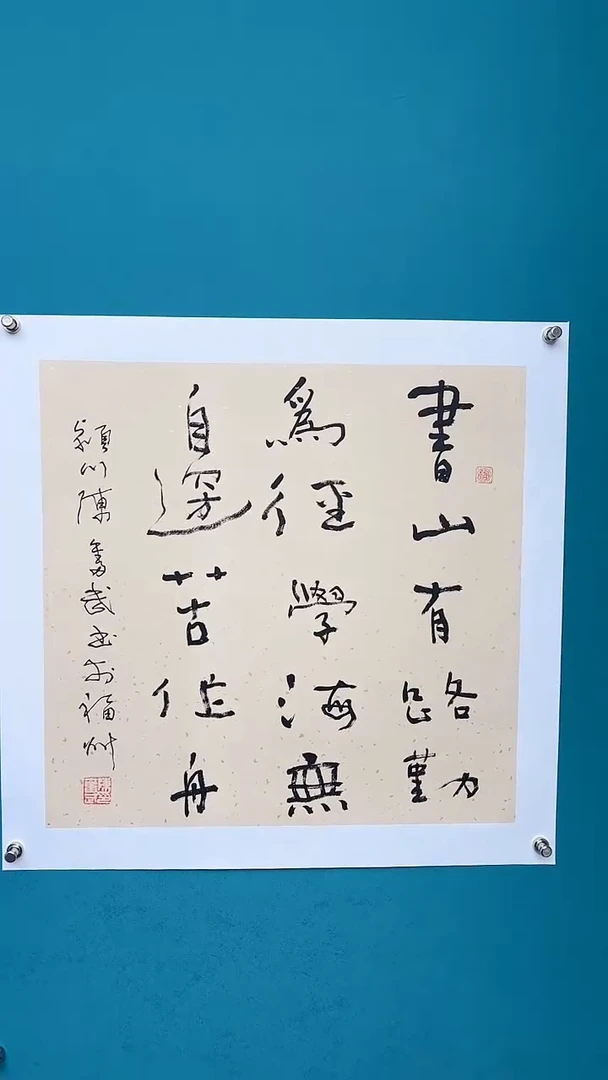 書山有路勤
為徑學海無
邊苦作舟
潁川陳奮武書於福州